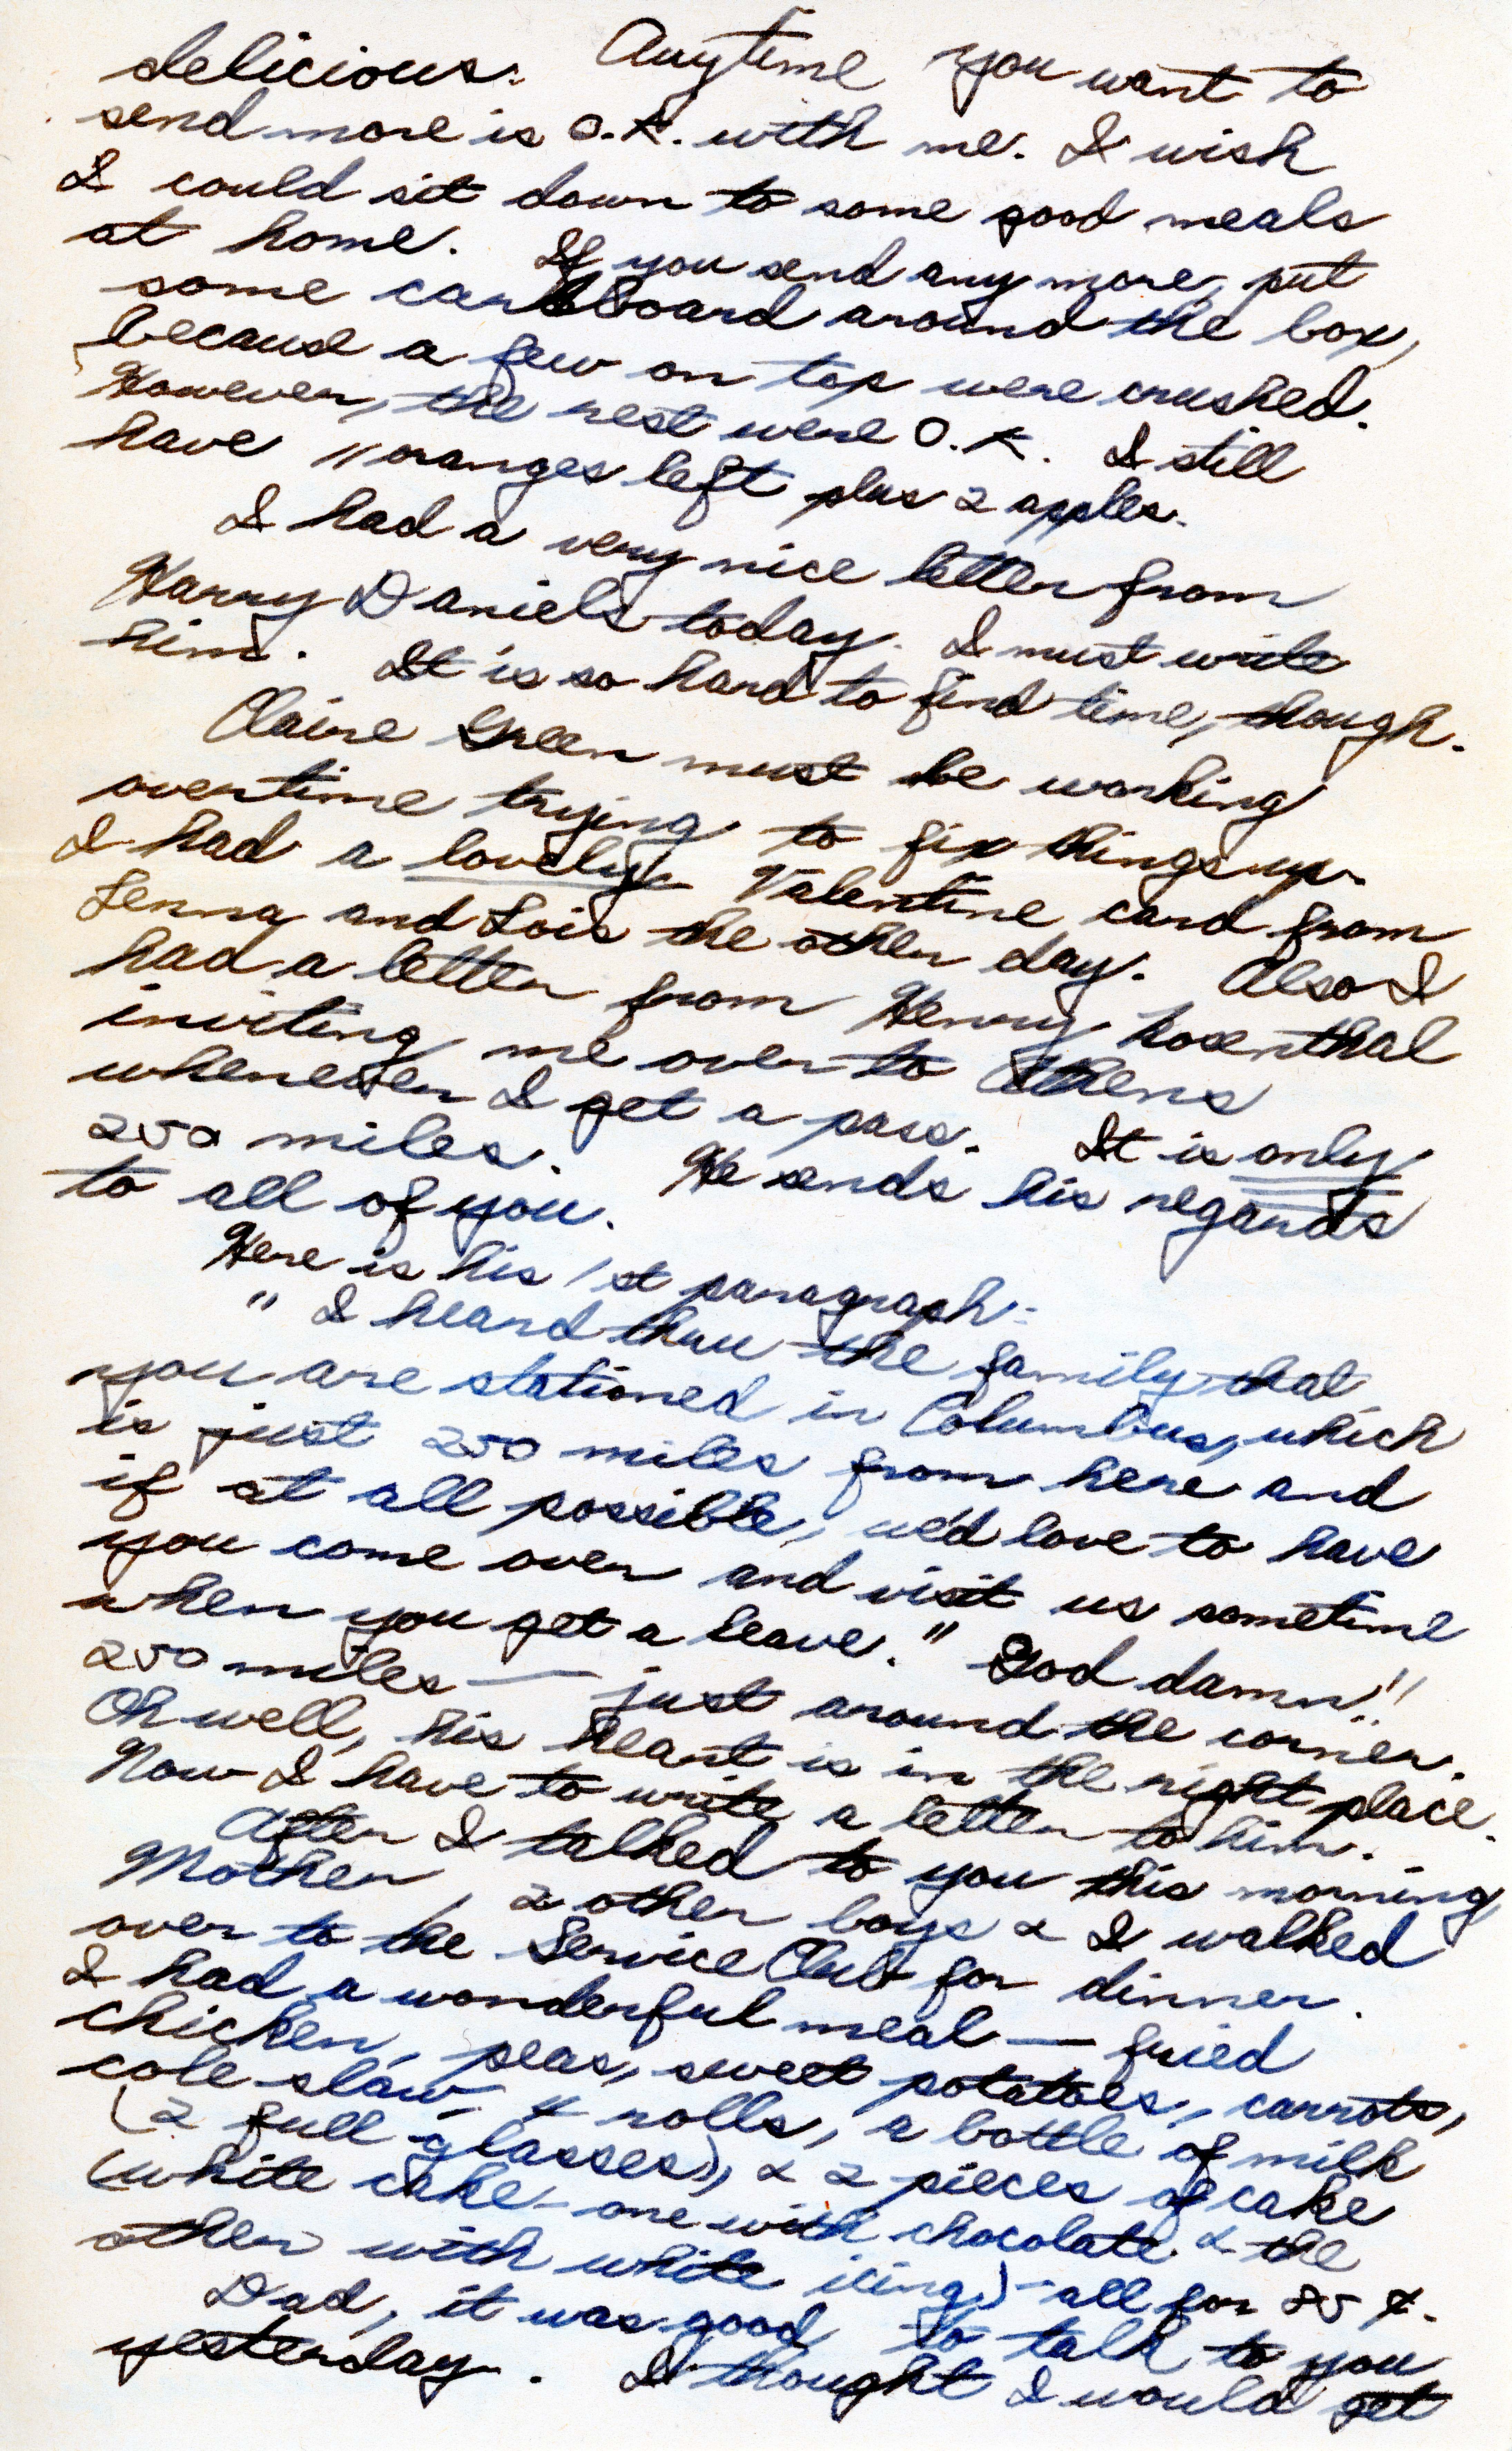 delicious. Anytime you want to
send more is O.K. with me. I wish
I could sit down to some good meals
at home. If you send any more, put
some cardboard around the box,
because a few on top were crushed.
However, the rest were O.K. I still
have 11 oranges left plus 2 apples.
I had a very nice letter from
Harry Daniels today. I must write
him. It is so hard to find time, though.
Claire Green must be working
overtime trying to fix things up.
I had a lovely Valentine card from
Lenna and Lois the other day. Also I
had a letter from Henry Rosenthal
inviting me over to Athens
whenever I get a pass. It is only
250 miles. He sends his regards
to all of you.
Here is his 1st paragraph:
" I heard thru the family that
you are stationed in Columbus, which
is just 250 miles from here and
if at all possible, we'd love to have
you come over and visit us sometime
when you get a leave." God damn!!
250 miles — just around the corner.
Oh well, his heart is in the right place.
Now I have to write a letter to him.
After I talked to you this morning
Mother, 2 other boys & I walked
over to the Service Club for dinner.
I had a wonderful meal — fried
chicken, peas, sweet potatoes, carrots,
cole-slaw, 4 rolls, a bottle of milk
(2 full glasses), & 2 pieces of cake
(white cake - one with chocolate & the
other with white icing) - all for 85 ¢.
Dad, it was good to talk to you
yesterday. I thought I would get